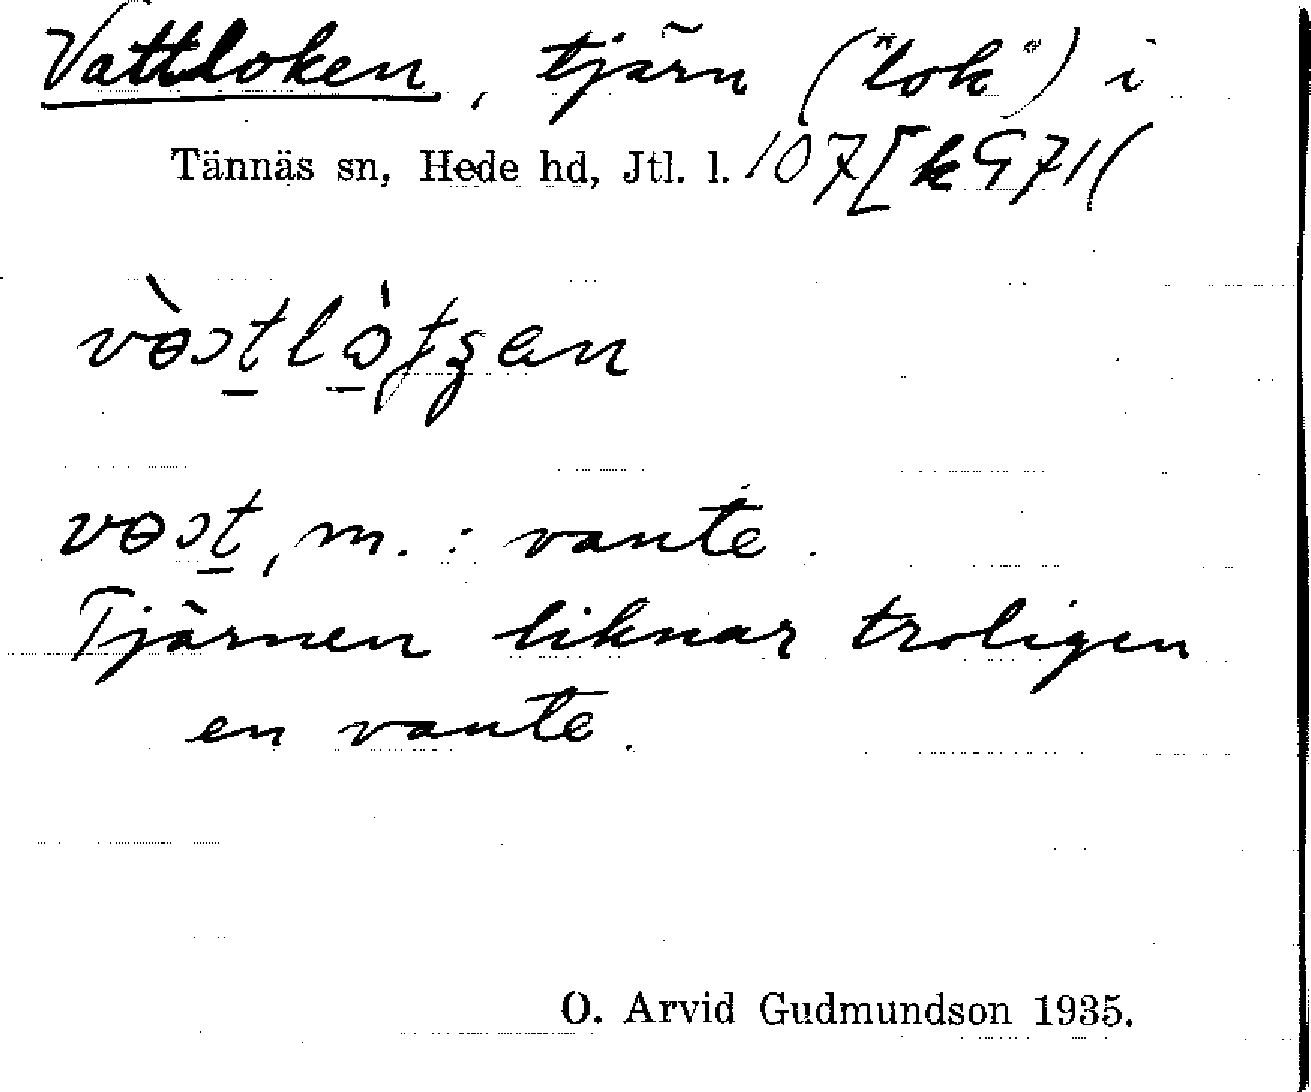 Vattloken, tjärn ("lok") i
Tännäs sn, Hede hd, Jtl. l. 107[k971(
vɵɔt, m. : vante.
Tjärnen liknar troligen
en vante.
O. Arvid Gudmundson 1935.